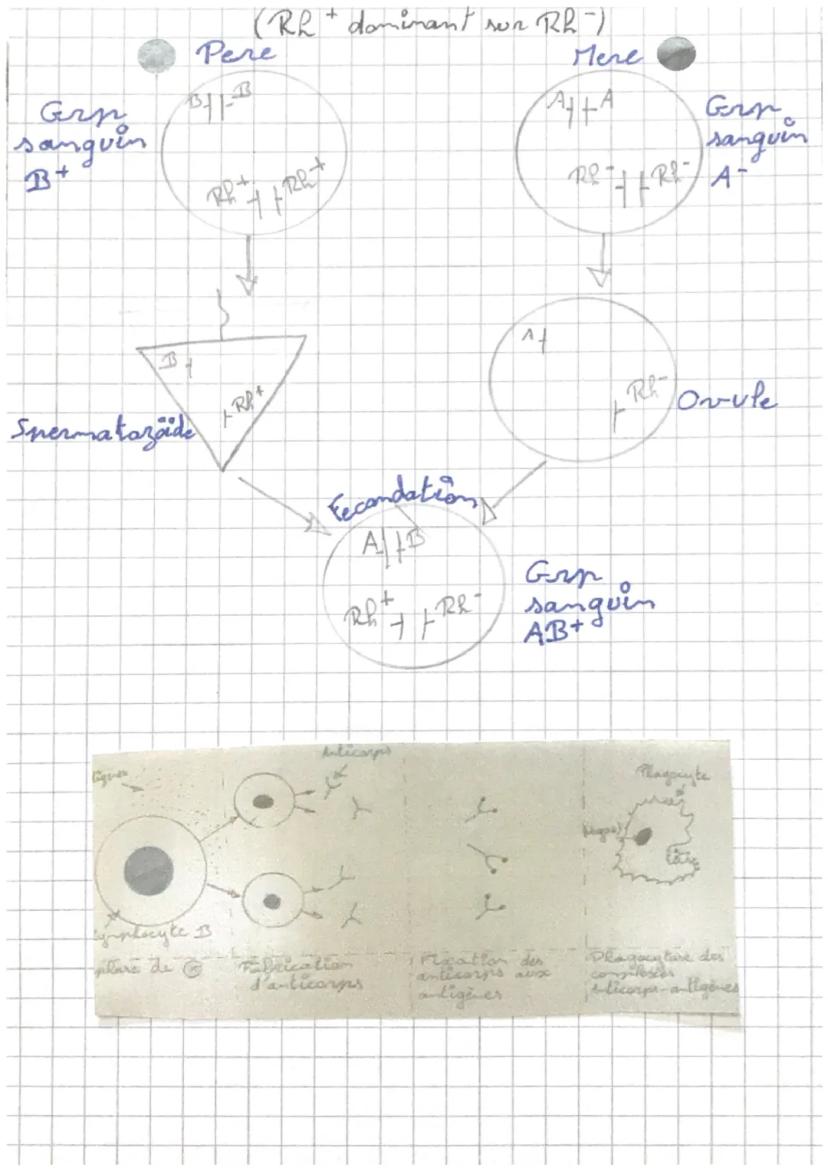 (Rh+ dominant sur Rh-)
Pere
Mere
Grp
sanguin
B+
B B
Rh+ Rh+
A A
Rh- Rh-
Grp
sanguin
A-
B
Rh+
Spermatozoïde
A
Rh-
Ovule
Fecondation
A B
Rh+ Rh-
Grp
sanguin
AB+
Anticorps
Phagocyte
Lymphocyte B
Fabrication
d'anticorps
Fixation des
anticorps aux
antigènes
Phagocytose des
complexes
anticorps-antigènes